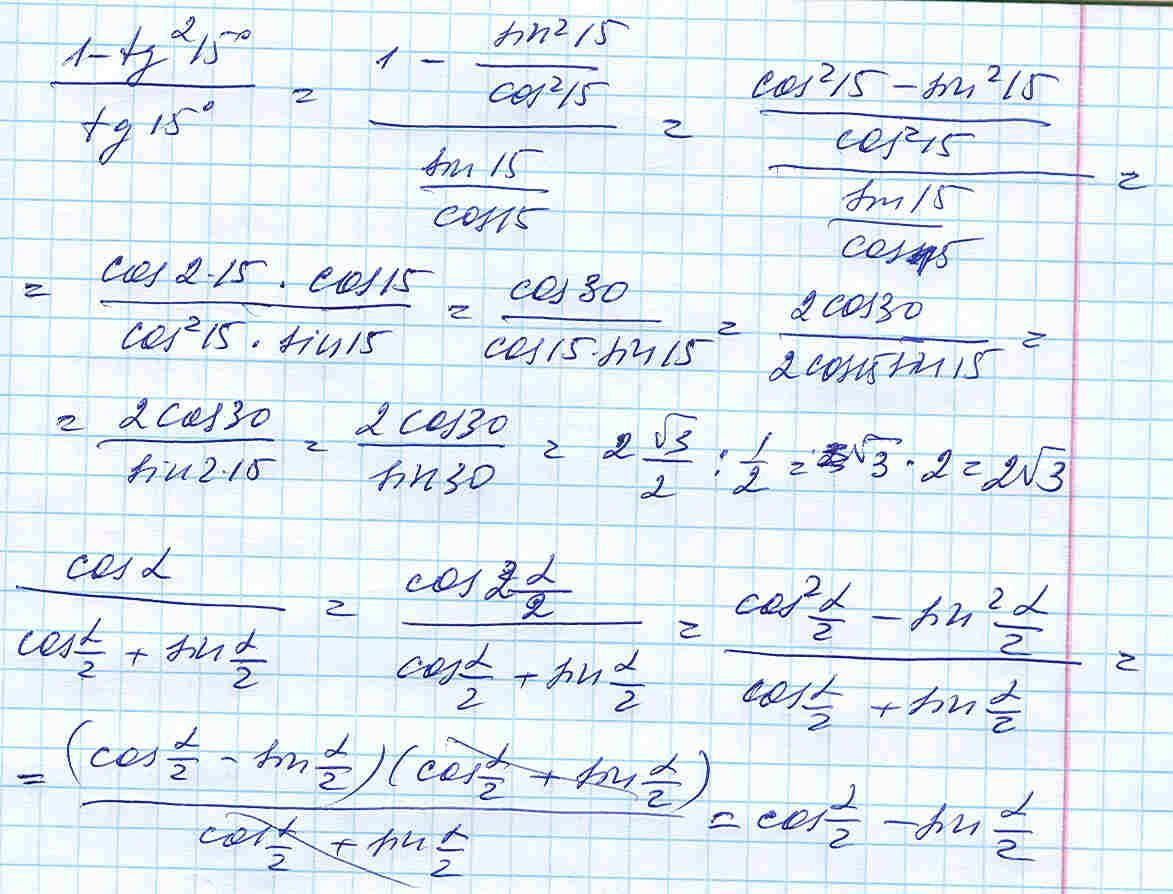 (1 - tg²15°)/(tg 15°) = (1 - sin²15/cos²15)/(sin 15/cos 15) = ((cos²15 - sin²15)/cos²15)/(sin 15/cos 15) =
= (cos 2·15 · cos 15)/(cos²15 · sin 15) = cos 30/(cos 15 · sin 15) = 2 cos 30/(2 cos 15 sin 15) =
= 2 cos 30/(sin 2·15) = 2 cos 30/sin 30 = 2 √3/2 : 1/2 = √3 · 2 = 2√3
cos α/(cos α/2 + sin α/2) = (cos 2 α/2)/(cos α/2 + sin α/2) = (cos² α/2 - sin² α/2)/(cos α/2 + sin α/2) =
= (cos α/2 - sin α/2)(cos α/2 + sin α/2)/(cos α/2 + sin α/2) = cos α/2 - sin α/2